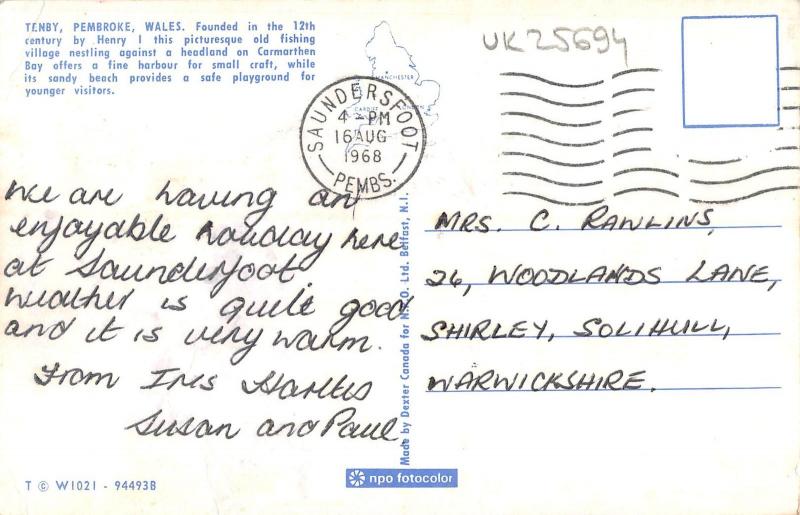 TENBY, PEMBROKE, WALES. Founded in the 12th
century by Henry I this picturesque old fishing
village nestling against a headland on Carmarthen
Bay offers a fine harbour for small craft, while
its sandy beach provides a safe playground for
younger visitors.
MANCHESTER
CARDIFF
LONDON
UK25694
SAUNDERSFOOT
4 - PM
16 AUG
1968
PEMBS.
We are having an
enjoyable holiday here
at Saundersfoot.
Weather is quite good
and it is very warm.
From Iris
Susan and Paul
Made by Dexter Canada for N.P.O. Ltd. Belfast, N.I.
MRS. C. RAWLINS,
26, WOODLANDS LANE,
SHIRLEY, SOLIHULL,
WARWICKSHIRE.
T © W1021 - 94493B
npo fotocolor